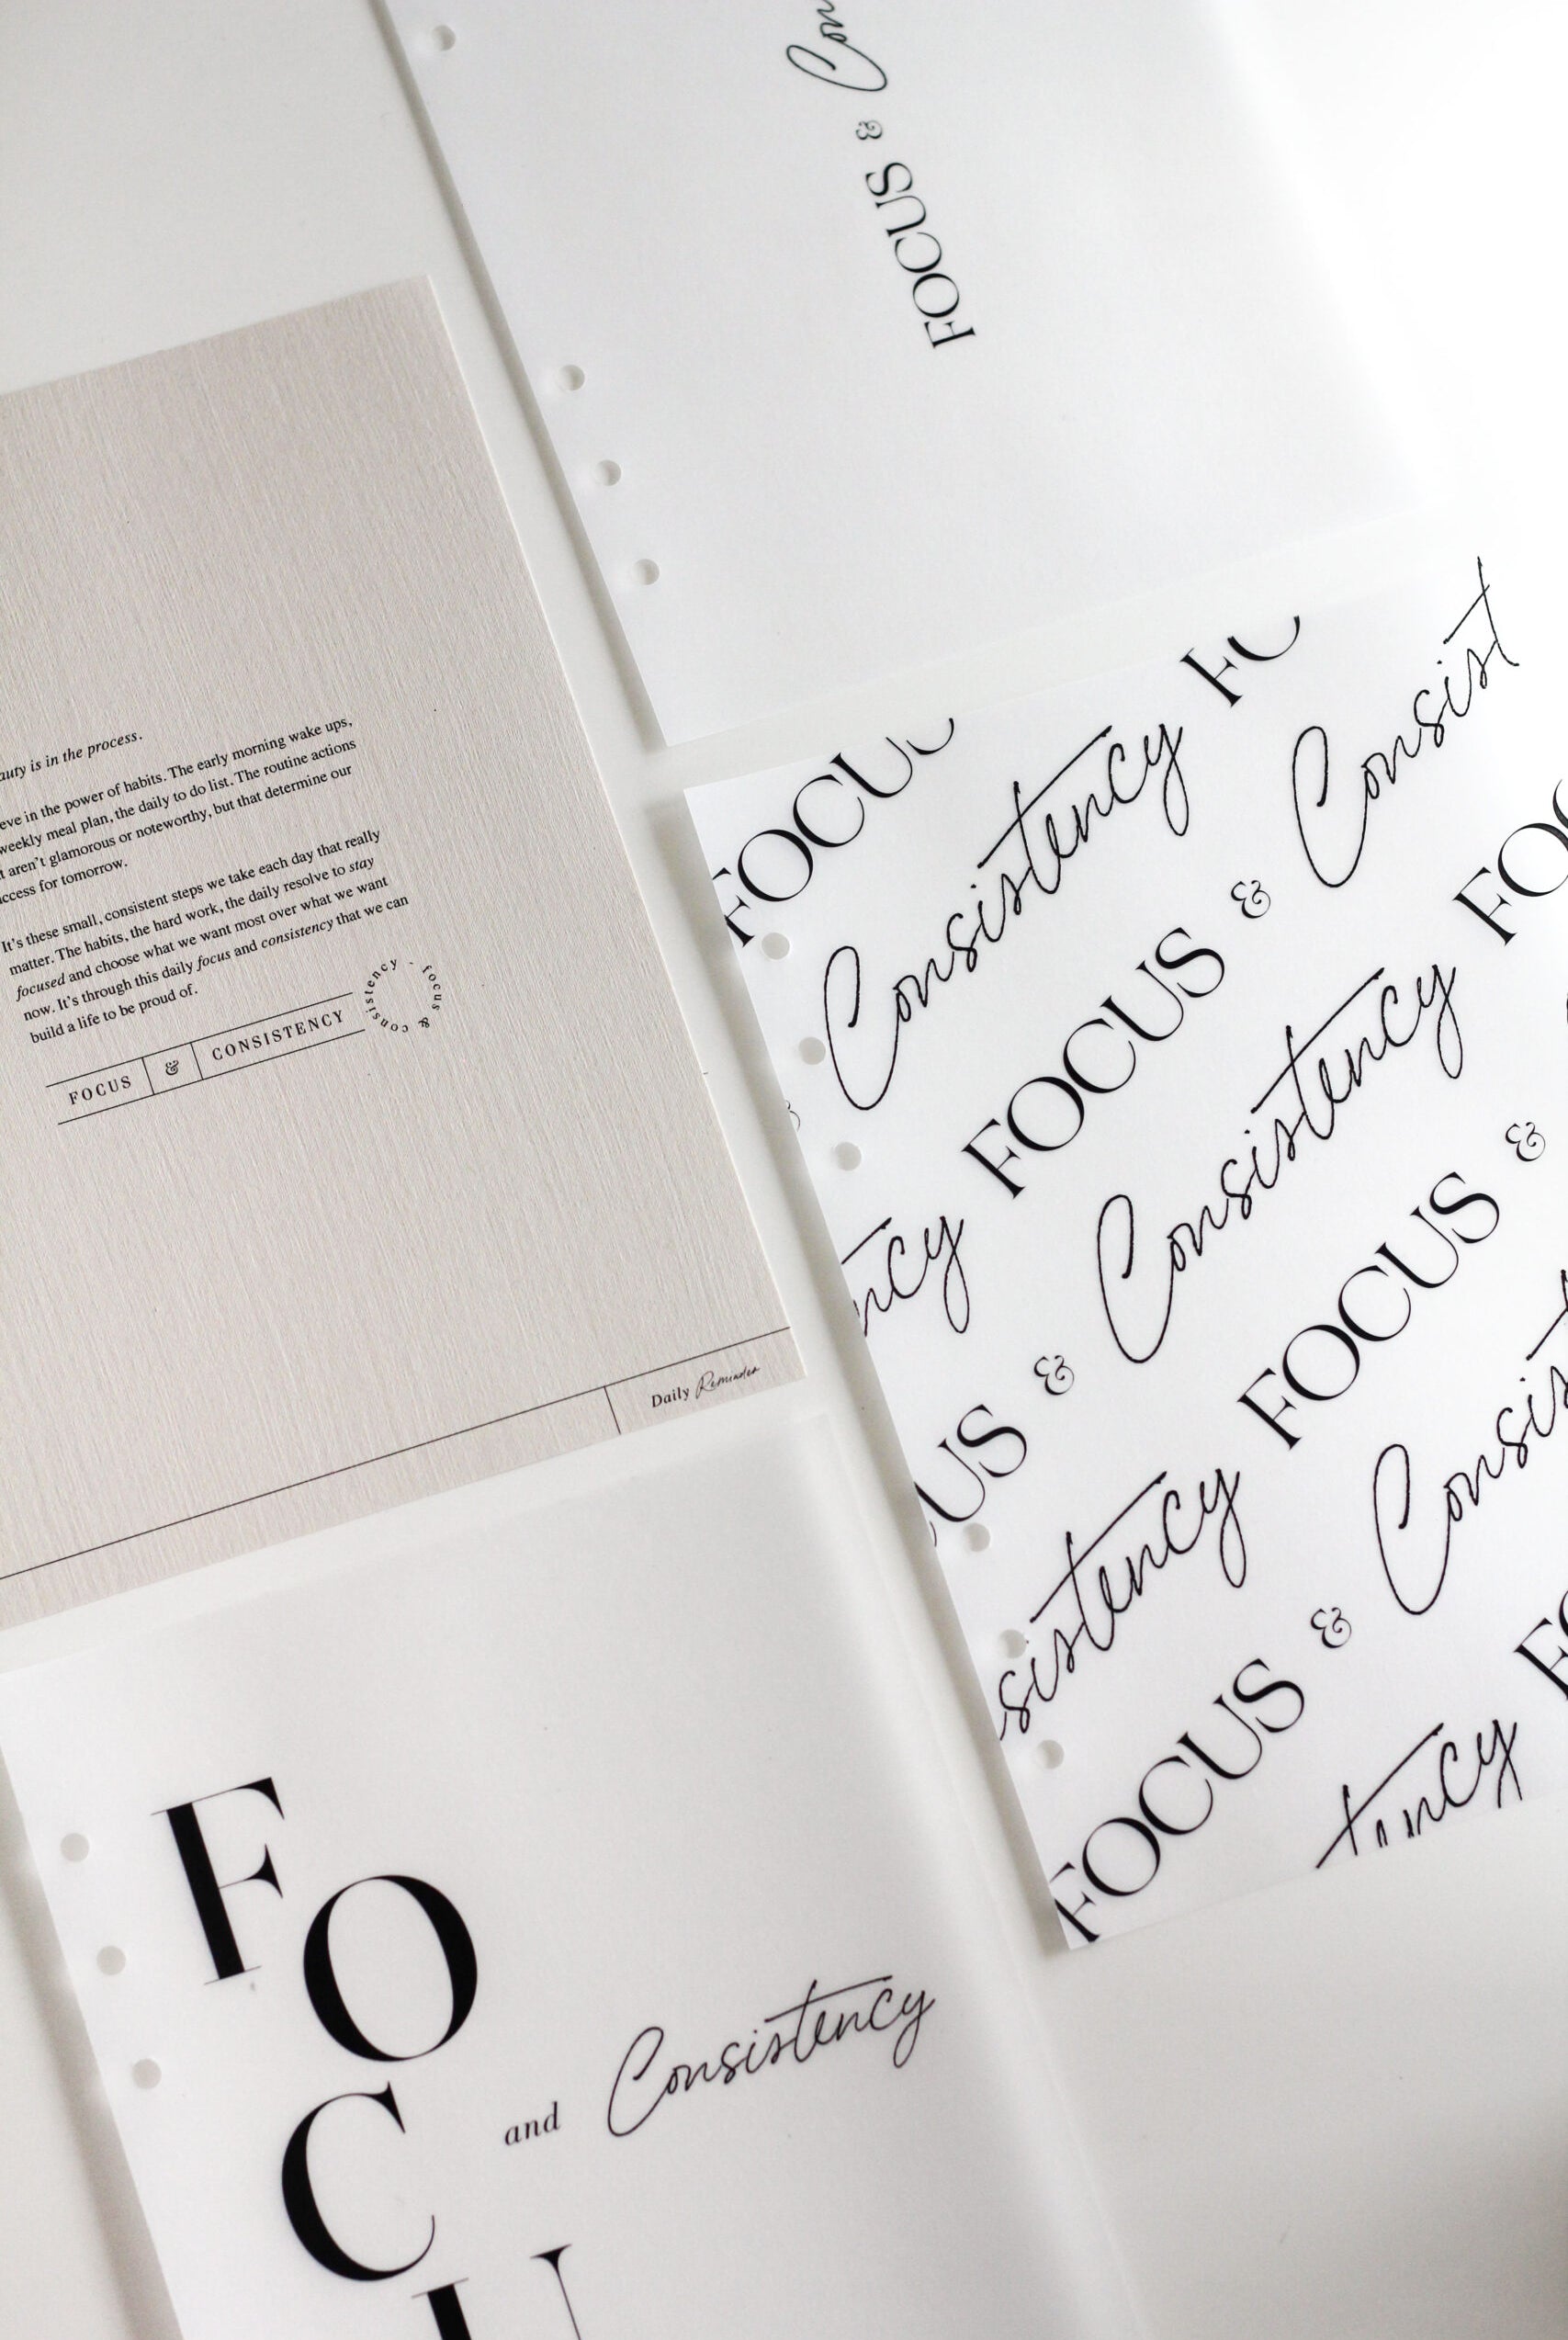 FOCUS & Con
auty is in the process.
eve in the power of habits. The early morning wake ups,
weekly meal plan, the daily to do list. The routine actions
t aren't glamorous or noteworthy, but that determine our
ccess for tomorrow.
It's these small, consistent steps we take each day that really
matter. The habits, the hard work, the daily resolve to stay
focused and choose what we want most over what we want
now. It's through this daily focus and consistency that we can
build a life to be proud of.
FOCUS & CONSISTENCY
focus & consistency
Daily Reminder
FOCU
Consistency FO
FOCUS & Consist
ncy FOCUS
US & Consistency FOC
sistency FOCUS &
FOCUS & Consis
tency FO
F
O
C
U
and Consistency